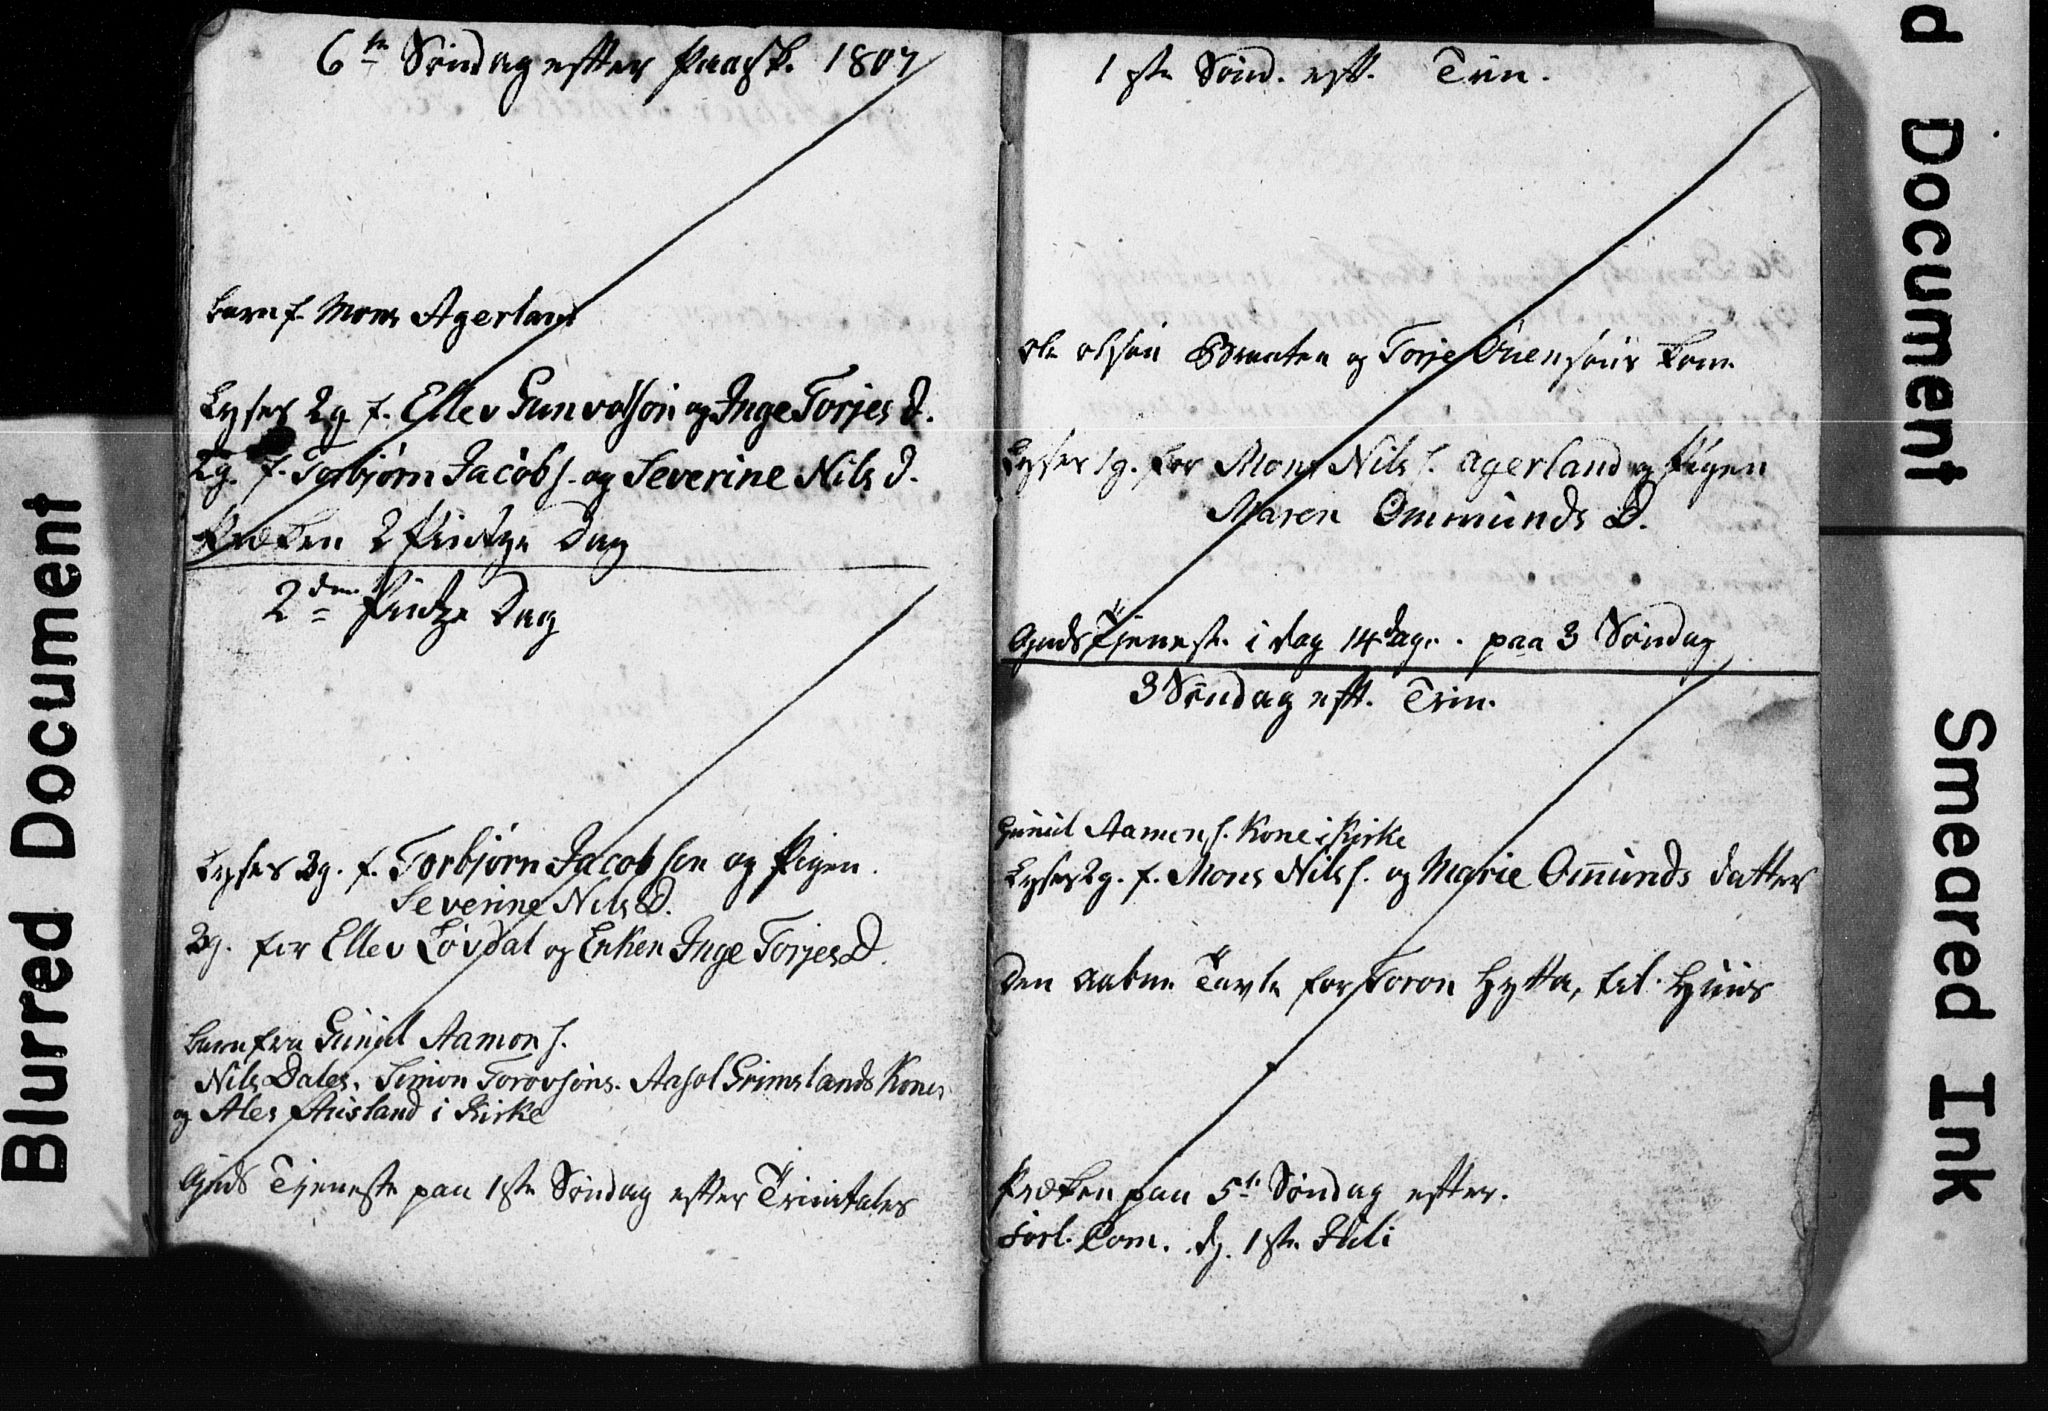 6te Søndag efter Paask. 1807
Barn f. Mons Agerland
Lyses 2g. f. Ellev Gunvolsøn og Inge Torjes d.
2g. f. Torbjørn Jacobs. og Severine Nils d.
Præken 2 Pintze Dag
2den Pintze Dag
Lyses 3g. f. Torbjørn Jacobsen og Pigen.
Severine Nils D.
3g. for Ellev Løvdal og Enken Inge Torjes D.
Barn fra Gunul Aamons.
Nils Dales, Simon Torovsøns. Aasol Grimslands Koner
og Ales Ausland i Kirke
Guds Tjeneste paa 1ste Søndag efter Trinitates
1ste Sønd. eft. Trin.
Ole Olsøn Braaten og Torje Ouensøns Kone
Lyses 1g. for Mons Nils s. Agerland og Pigen
Maren Ommunds D.
Guds Tjeneste i dag 14 dage. paa 3 Søndag
3 Søndag eft. Trin.
Gunul Aamons. Kone i Kirke
Lyses 2g. f. Mons Nils s. og Marie Omunds datter
Den aabne Tavle for Toron Hytta, til Huus
Præken paa 5te Søndag efter.
Com. d. 1ste Juli
Blurred Document
d Document
Smeared Ink